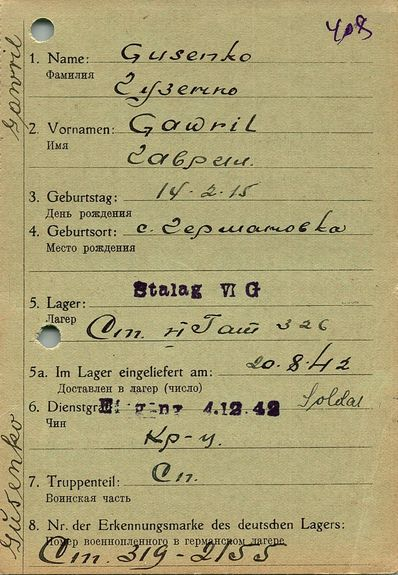 408
1. Name: Gusenko
Фамилия
Гузенко
2. Vornamen: Gawril
Имя
Гаврил.
3. Geburtstag: 14-2-15
День рождения
4. Geburtsort: с. Германовка
Место рождения
Stalag VI G
5. Lager:
Лагер
Ст. 326
5a. Im Lager eingeliefert am: 20.8.42
Доставлен в лагер (число)
6. Dienstgrad: Eingang 4.12.42 Soldat
Чин
Кр-ц.
7. Truppenteil: Сп.
Воинская часть
8. Nr. der Erkennungsmarke des deutschen Lagers:
Номер военнопленного в германском лагере
Ст. 319-2155
Gawril
Gusenko